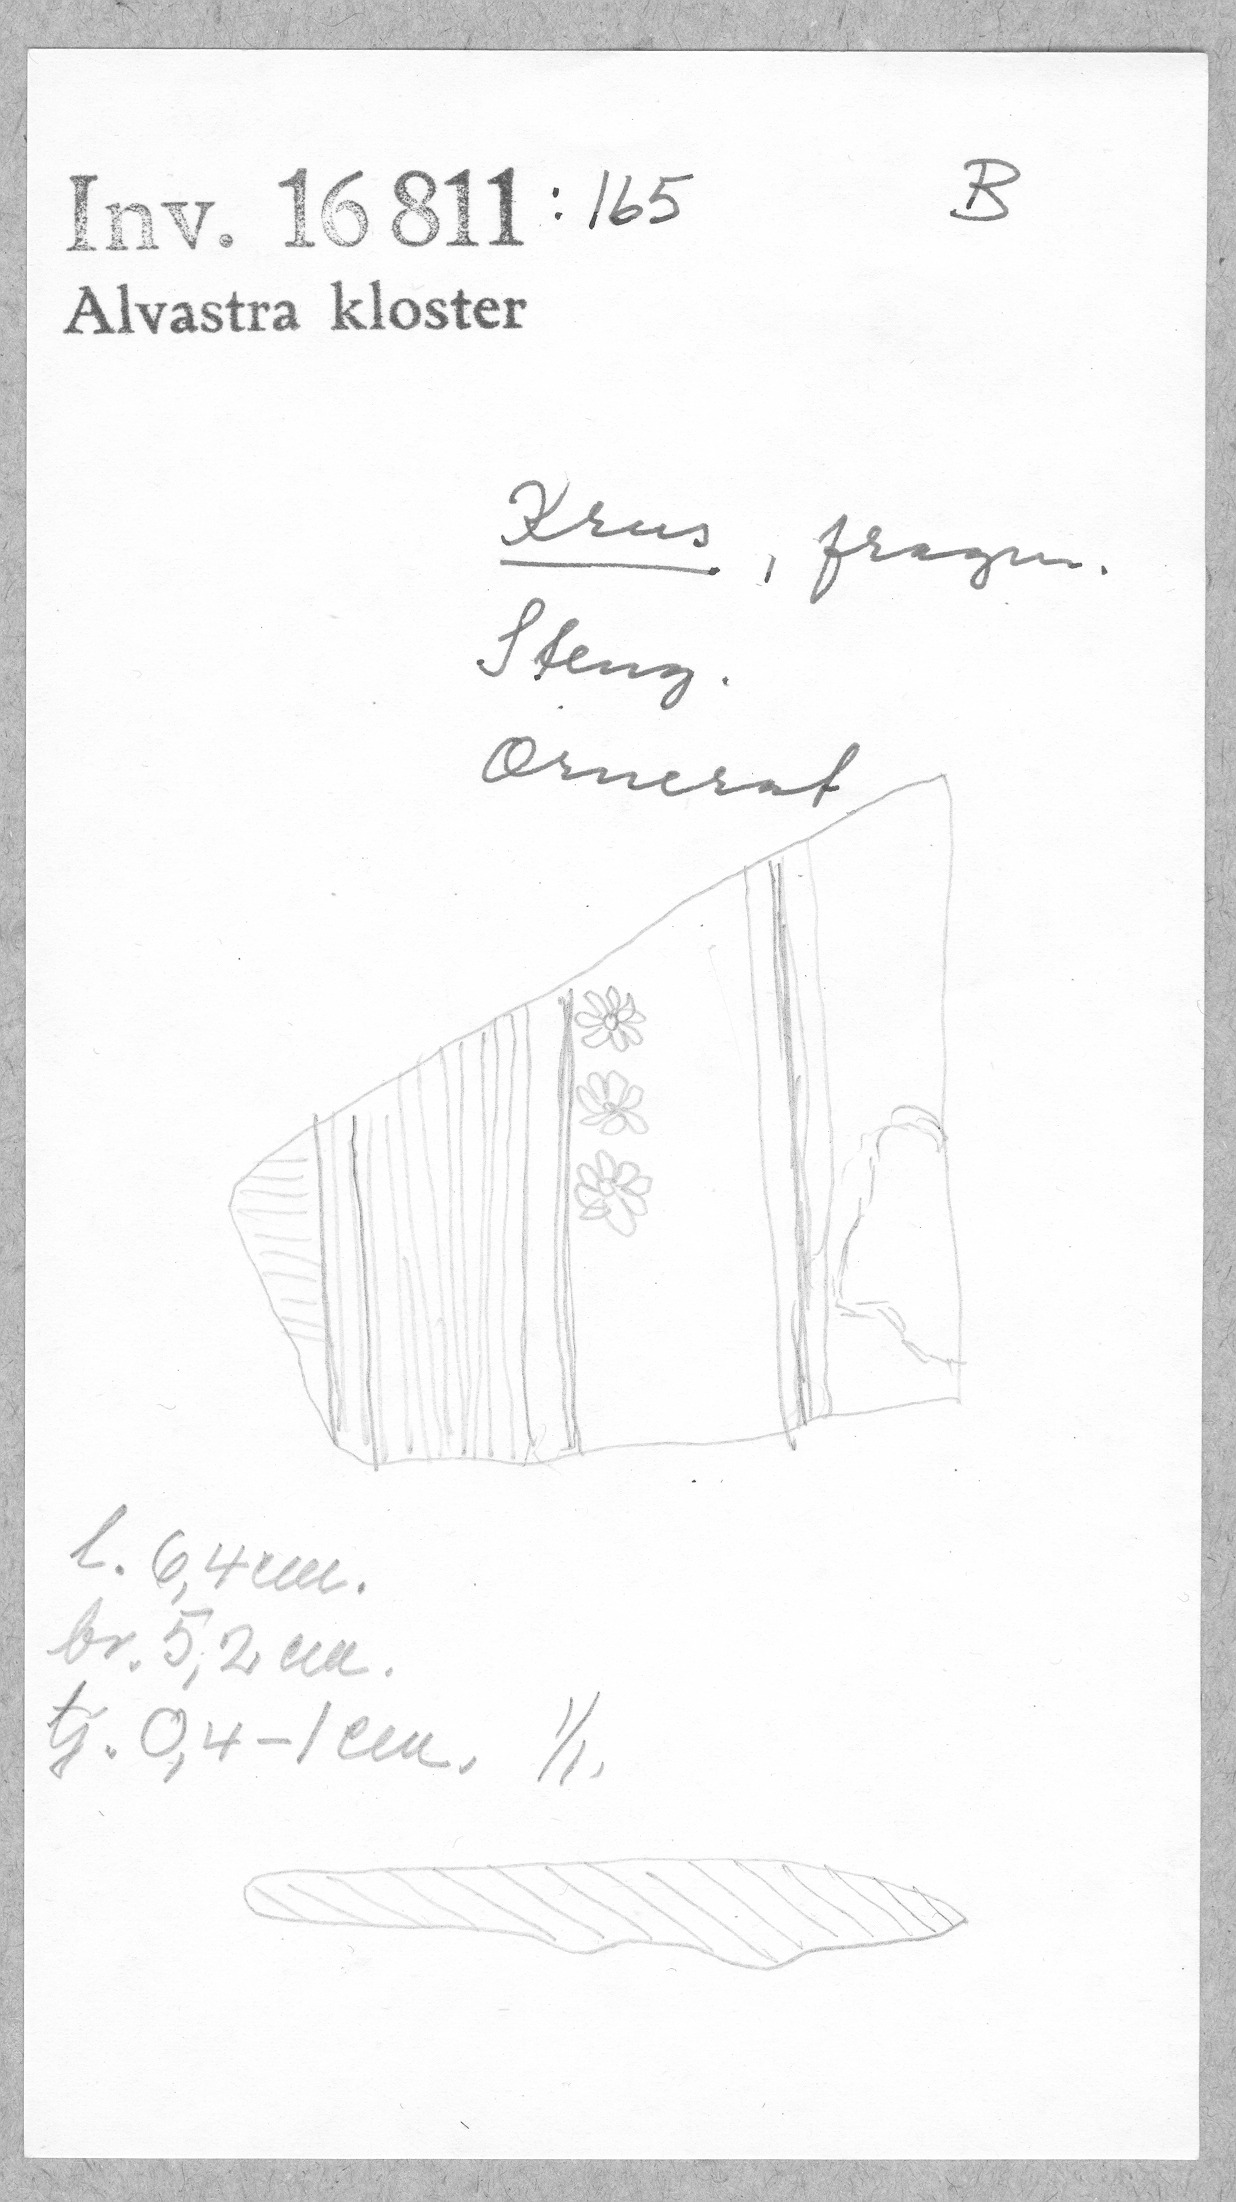 Inv. 16 811 : 165 B
Alvastra kloster
Krus, fragm.
Steng.
Ornerat
l. 6,4 cm.
br. 5,2 cm.
tj. 0,4-1 cm. 1/1.